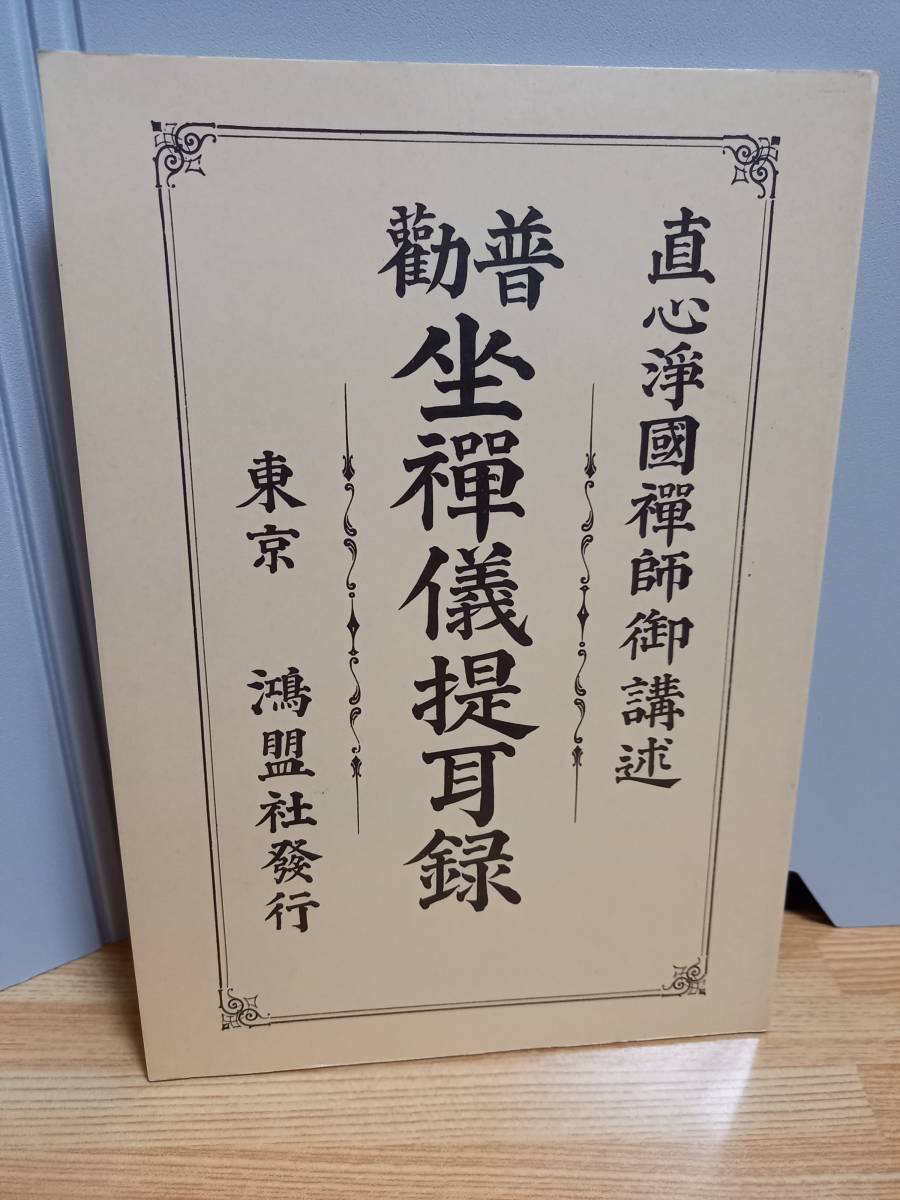 直心淨國禪師御講述
普勸
坐禪儀提耳録
東京 鴻盟社發行